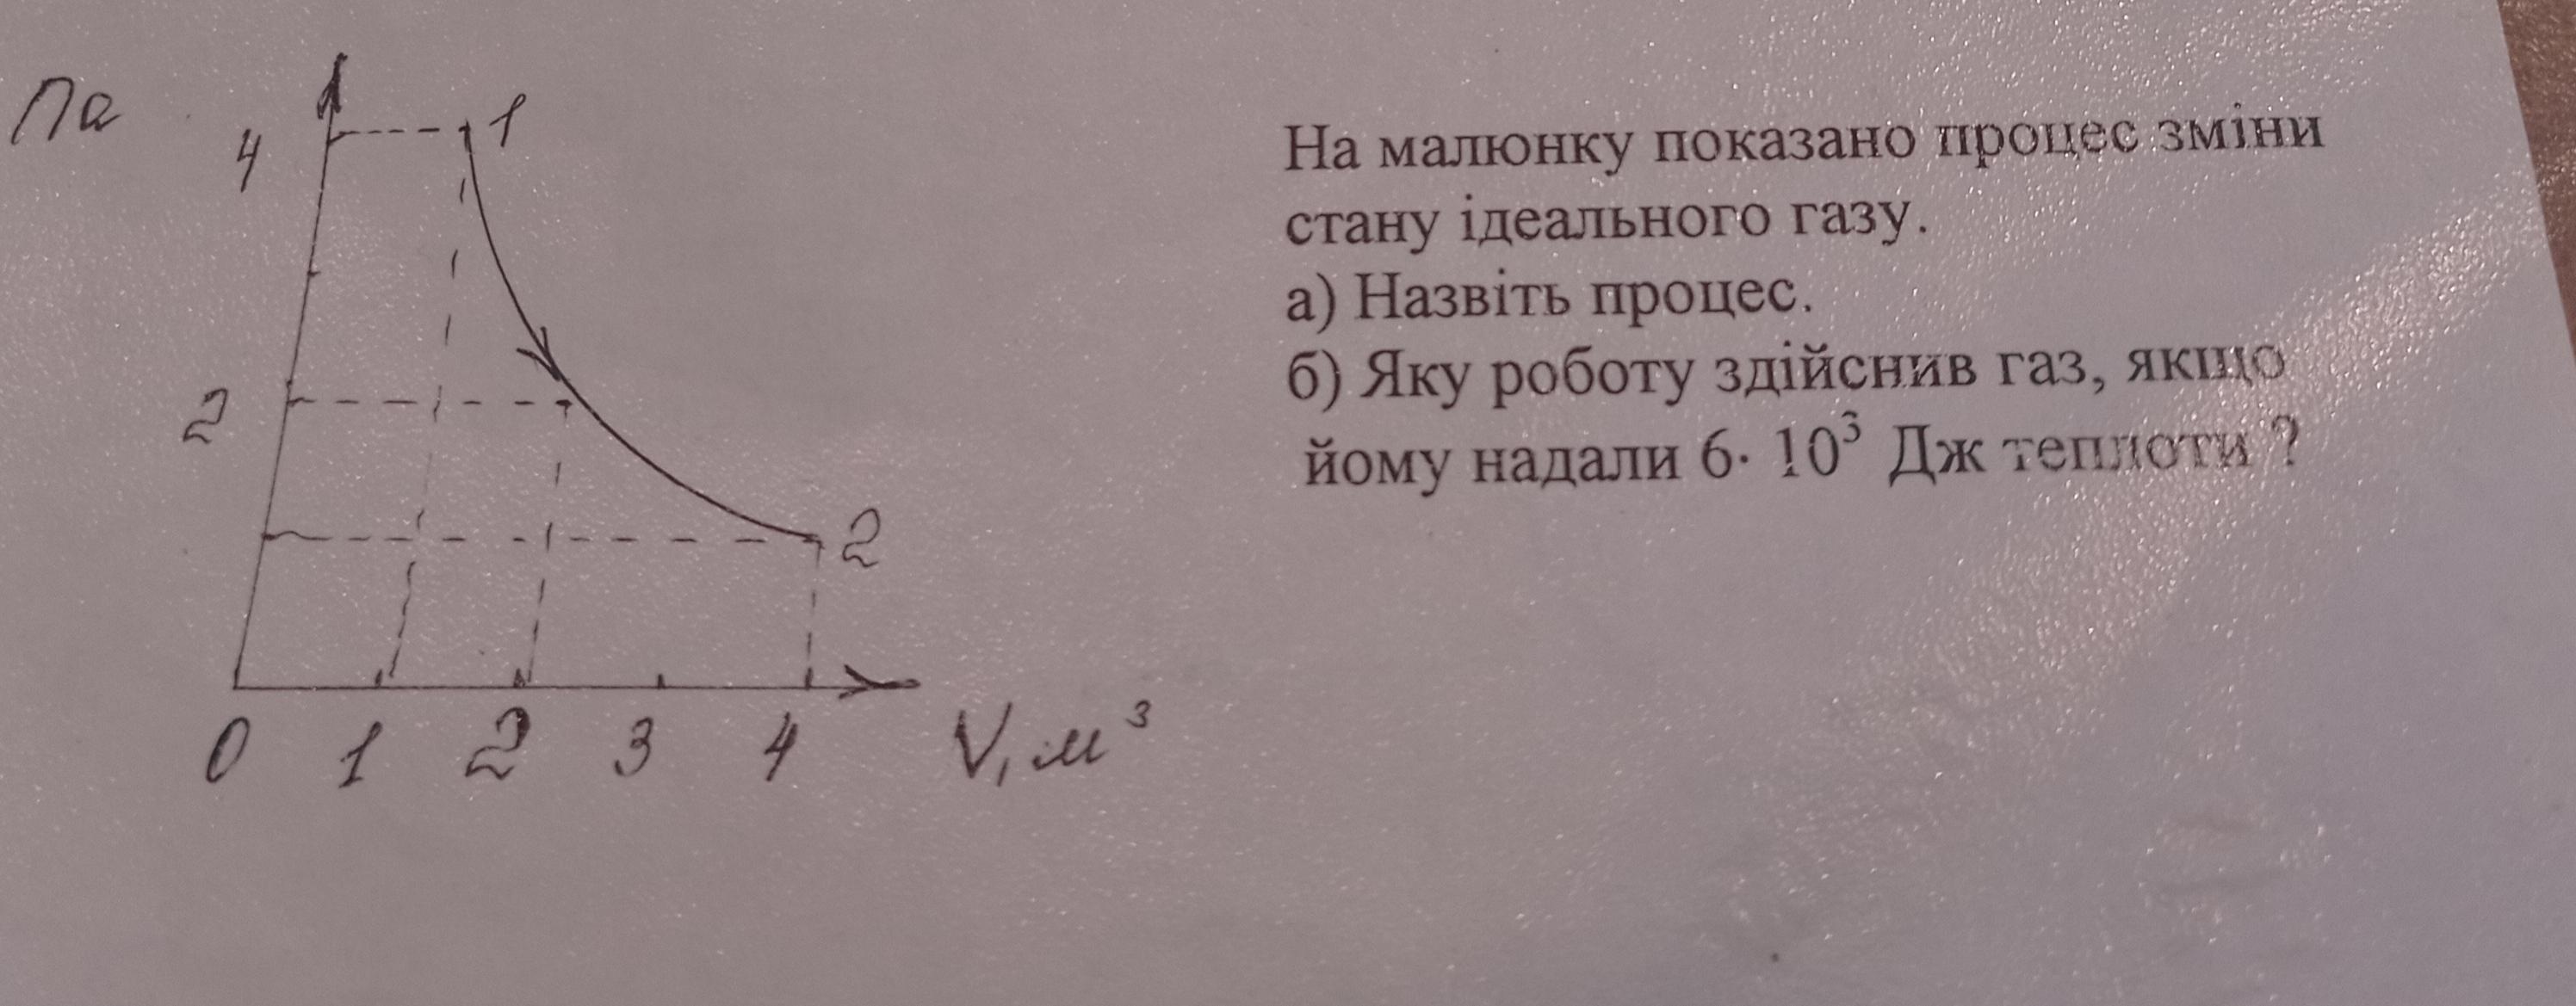 Па
4
1
2
2
0 1 2 3 4 V, м³
На малюнку показано процес зміни
стану ідеального газу.
а) Назвіть процес.
б) Яку роботу здійснив газ, якщо
йому надали 6· 10³ Дж теплоти ?